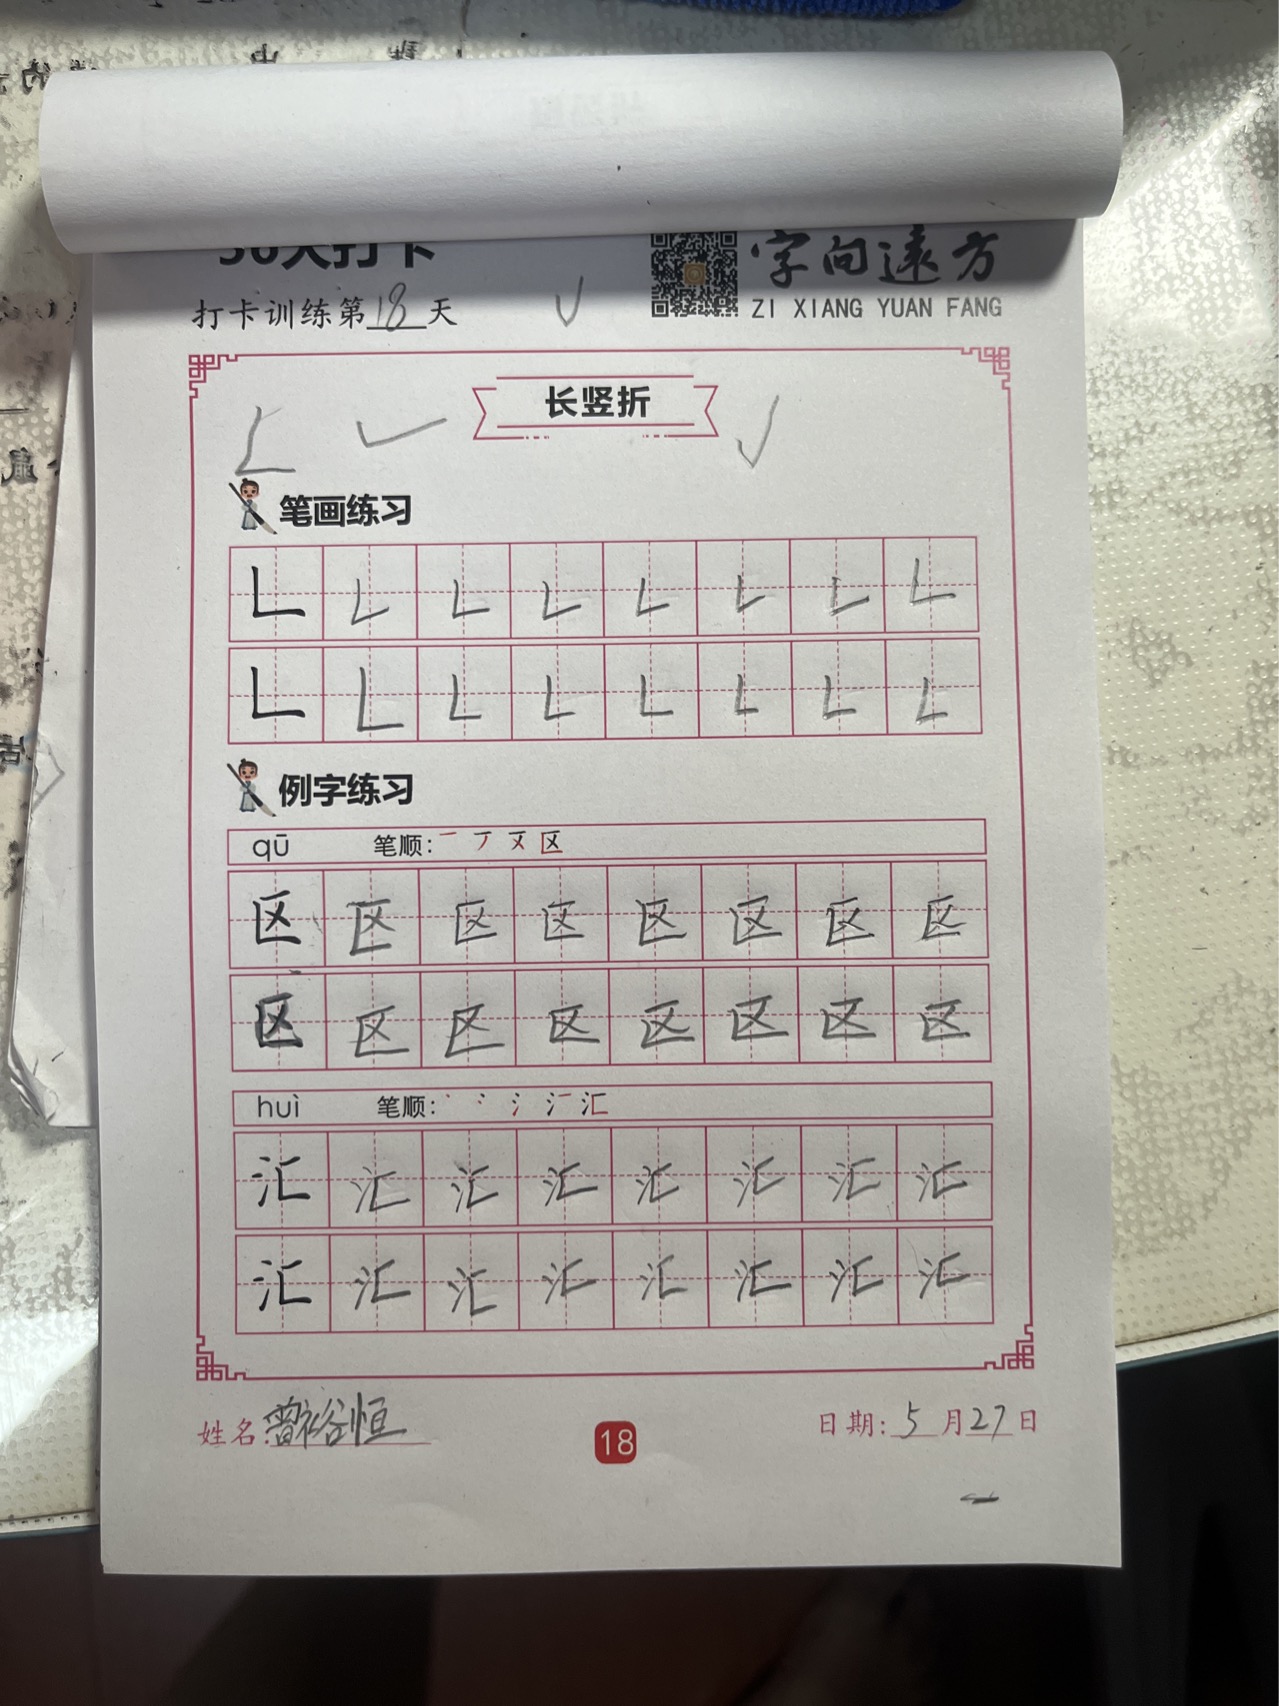 30天打卡
字向远方
打卡训练第18天
ZI XIANG YUAN FANG
长竖折
笔画练习
例字练习
qū 笔顺: 一 丆 又 区
区 区 区 区 区 区 区 区
区 区 区 区 区 区 区 区
huì 笔顺: 丶 冫 氵 汇
汇 汇 汇 汇 汇 汇 汇 汇
汇 汇 汇 汇 汇 汇 汇 汇
姓名:曾裕恒
18
日期:5月27日